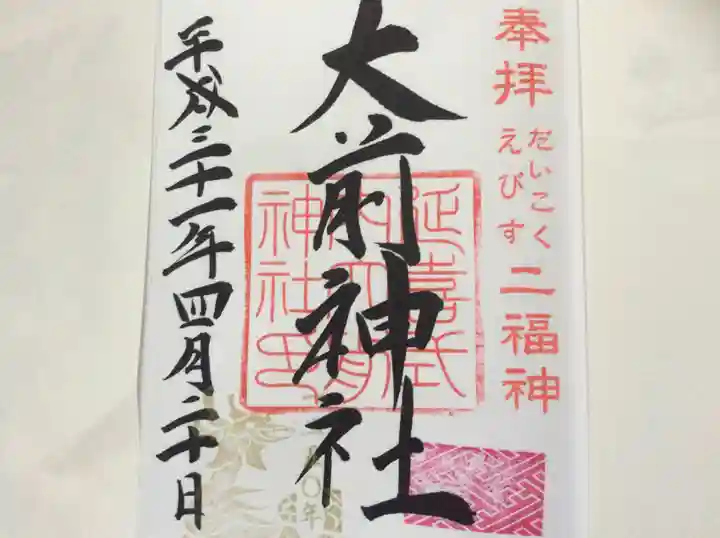 奉拝
だいこく
えびす
二福神
大前神社
延喜式
内大前
神社印
平成三十一年四月二十日
〇年